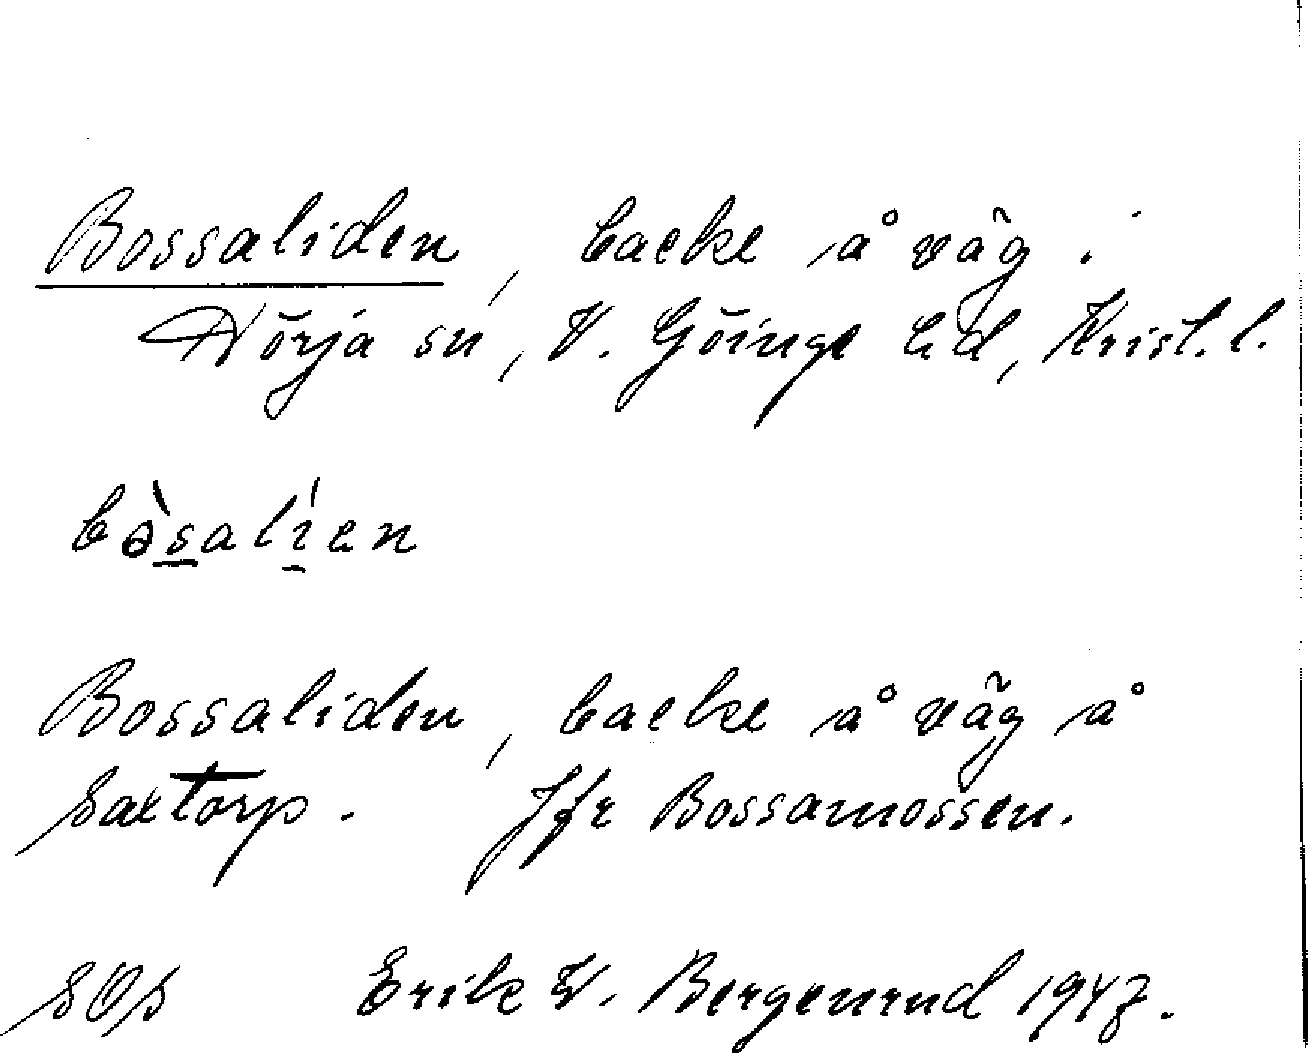 Bossaliden, backe å väg i
Nörja sn, V. Göinge hd, Krist. l.
bòsalíen
Bossaliden, backe å väg å
Saxtorp. Jfr Bossamossen.
SOS Erik W. Bergenrud 1947.